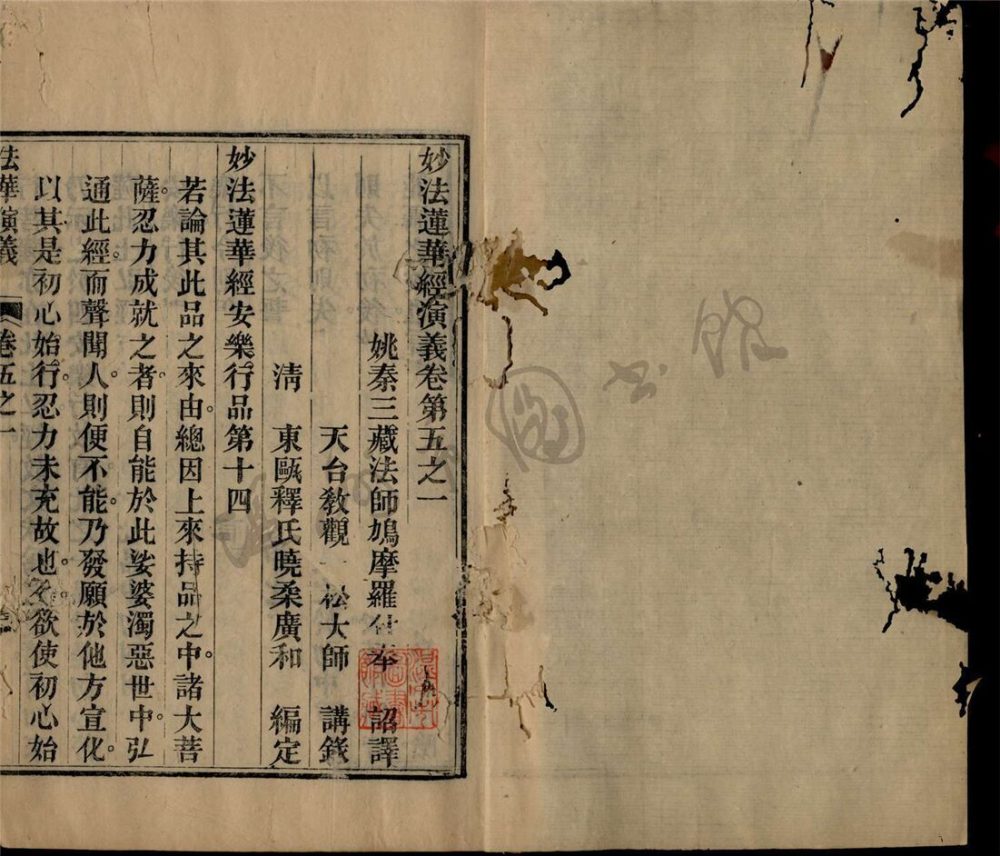 妙法蓮華經演義卷第五之一
姚秦三藏法師鳩摩羅什奉 詔譯
天台教觀 一松大師 講錄
清 東甌釋氏曉柔廣和 編定
妙法蓮華經安樂行品第十四
若論其此品之來由。總因上來持品之中。諸大菩
薩。忍力成就之者。則自能於此娑婆濁惡世中。弘
通此經。而聲聞人。則便不能。乃發願於他方宣化。
以其是初心始行。忍力未充故也。欲使初心始
法華演義 卷五之一